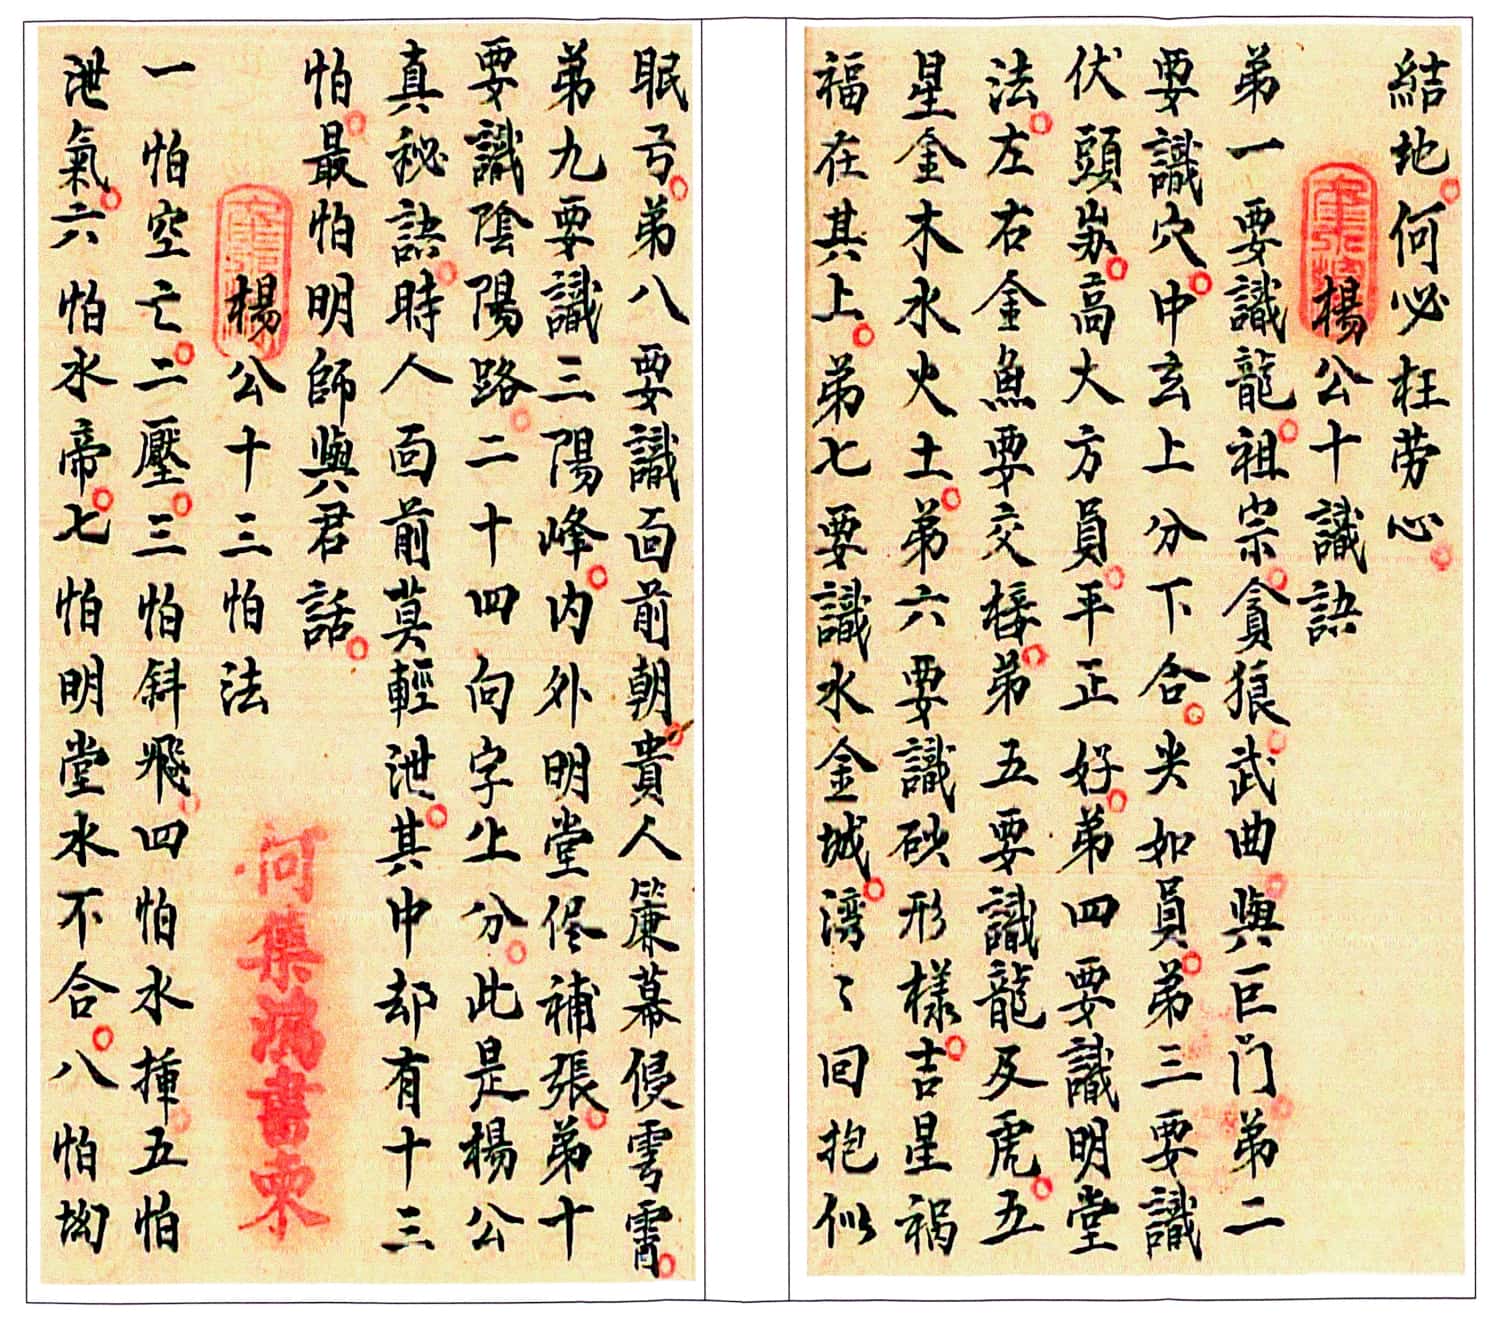 結地何必枉劳心
楊公十識訣
弟一要識龍祖宗貪狼武曲與巨门弟二
要識穴中玄上分下合尖如員弟三要識
伏頭高大方員平正好弟四要識明堂
法左右金魚要交椄弟五要識龍及虎五
星金木水火土弟六要識砂形樣吉星禍
福在其上弟七要識水金城湾々回抱似
眠弓弟八要識面前朝貴人簾幕侵雲霄
弟九要識三陽峰内外明堂侭補張弟十
要識陰陽路二十四向字上分此是楊公
真秘訣時人面前莫輕泄其中却有十三
怕最怕明師與君話
楊公十三怕法
何集書
一怕空亡二壓三怕斜飛四怕水揰五怕
泄氣六怕水帝七怕明堂水不合八怕坳